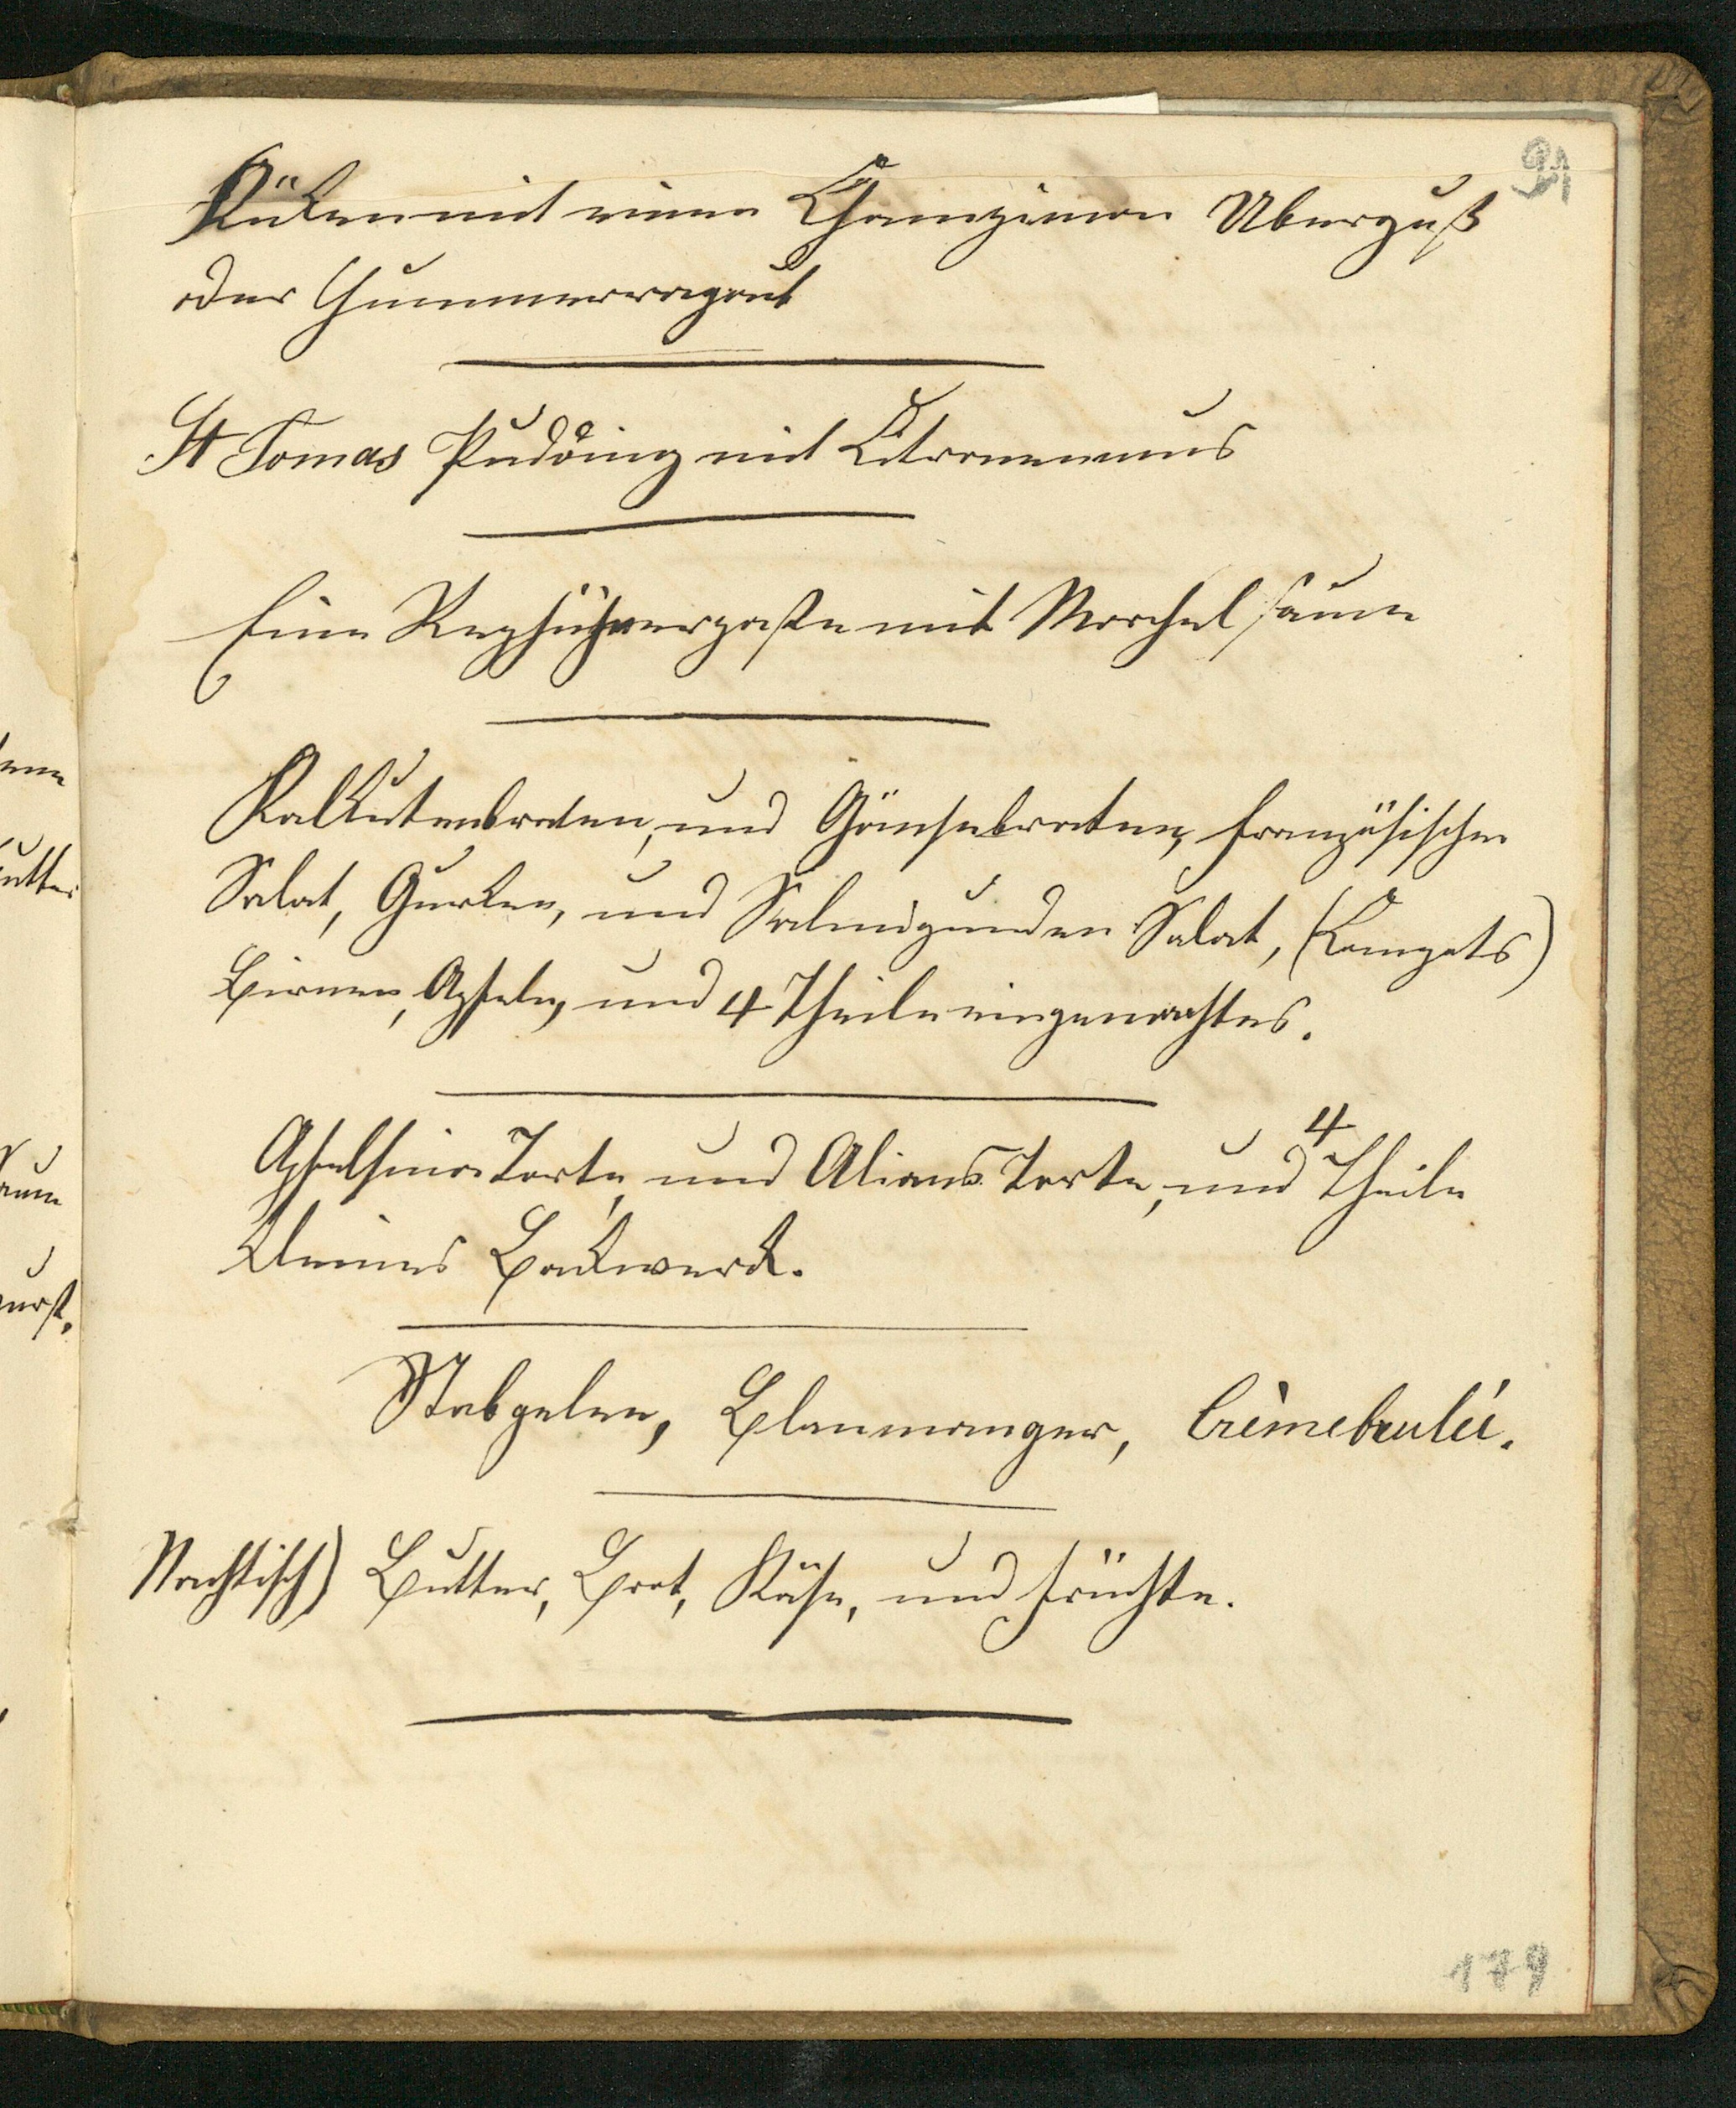 91
Küken mit einen Champinion Uberguß
oder Hummerragout
St Tomas Pudding mit Citronenmus
Eine Rephühnerpaste mit Morchel sause
Kalkutenbraten, und Gänsebraten, französischer
Salat, Gurken, und Salmigunden Salat, (Compots)
Birnen, Apfeln, und 4 Theile eingemachtes.
4
Apfelsine Torte, und Alians Torte, und Theile
kleines Backwerk.
Stabgelee, Blanmanger, Crèmebrulée.
Nachtisch) Butter, Brot, Käse, und früchte.
179